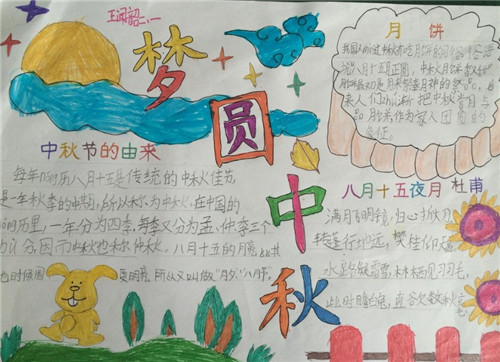 王闻韶二、一
梦
圆
中
秋
月饼
我国人们过中秋有吃月饼的习俗
说八月十五正圆，中秋月饼
来人们逐渐把中秋赏月与
月饼来作为家人团圆的
象征。
中秋节的由来
每年阴历八月十五是传统的中秋佳节，
是一年秋季的中期，所以称为中秋，在中国的
历里，一年分为四季，每季又分为孟、仲、季三个
部分，因而中秋也称仲秋。八月十五的月亮比其
他时候圆 更明亮，所以又叫做“月夕”“八月节”。
八月十五夜月 杜甫
满月飞明镜，归心折大刀
转蓬行地远，攀桂仰天
水路疑霜雪，林栖见羽毛，
此时瞻白兔，直谷欠数秋毫